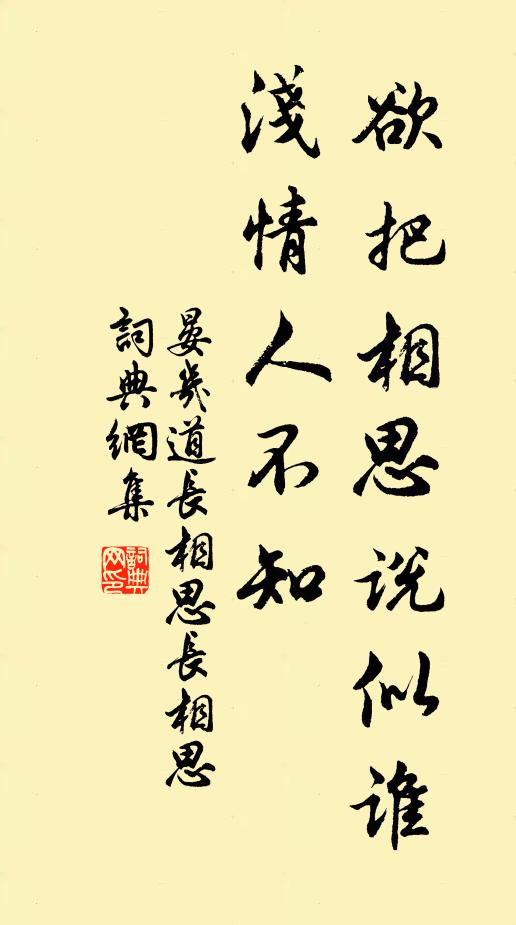 欲把相思説似誰
淺情人不知
晏幾道長相思長相思
詞典網集
詞典
网印